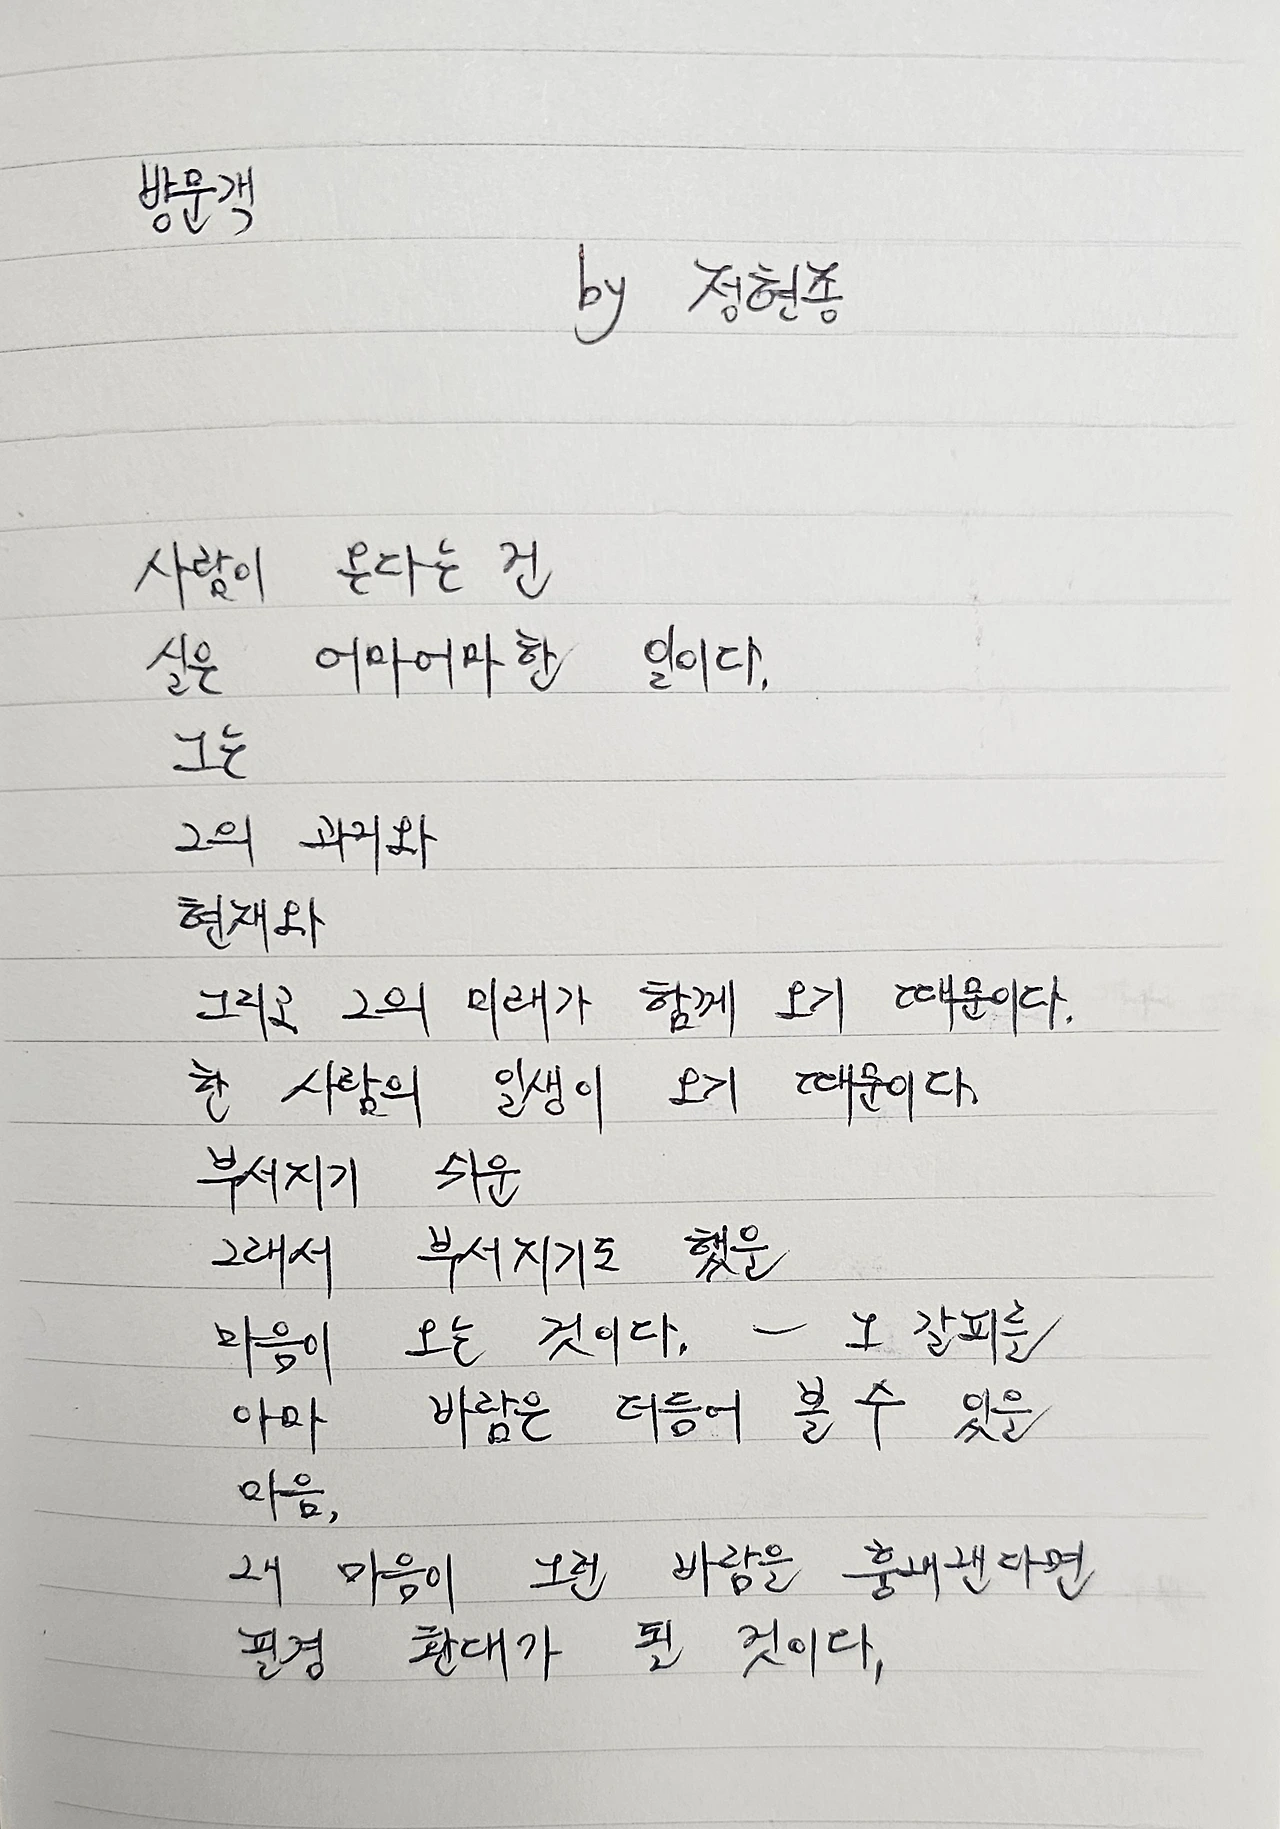 방문객
by 정현종
사람이 온다는 건
실은 어마어마한 일이다.
그는
그의 과거와
현재와
그리고 그의 미래가 함께 오기 때문이다.
한 사람의 일생이 오기 때문이다.
부서지기 쉬운
그래서 부서지기도 했을
마음이 오는 것이다. ㅡ 그 갈피를
아마 바람은 더듬어 볼 수 있을
마음,
내 마음이 그런 바람을 흉내낸다면
필경 환대가 될 것이다,